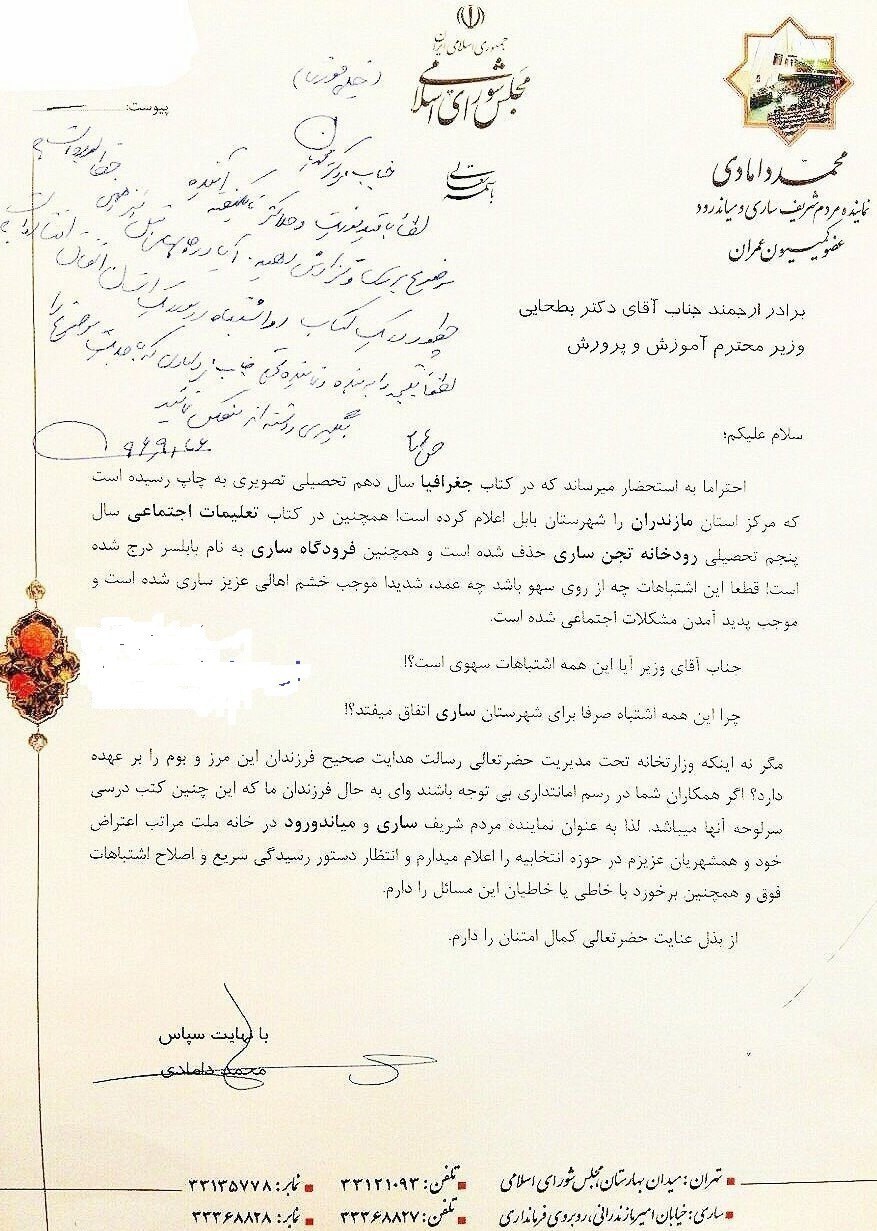 جمهوری اسلامی ایران
مجلس شورای اسلامی
باسمه تعالی
پیوست:
محمد دامادی
نماینده مردم شریف ساری و میاندرود
عضو کمیسیون عمران
(خیلی فوری)
جناب دکتر
لطفا با قید فوریت و حداکثر تا آینده
موضوع بررسی و گزارش دهید. آیا در
چطور در یک کتاب دو اشتباه در مورد یک استان اتفاق
لطفا نتیجه را به بنده و نماینده جناب دامادی که با جدیت موضوع را
پیگیری داشته‌اند منعکس نمائید
برادر ارجمند جناب آقای دکتر بطحایی
وزیر محترم آموزش و پرورش
سلام علیکم؛
احتراما به استحضار میرساند که در کتاب جغرافیا سال دهم تحصیلی تصویری به چاپ رسیده است
که مرکز استان مازندران را شهرستان بابل اعلام کرده است! همچنین در کتاب تعلیمات اجتماعی سال
پنجم تحصیلی رودخانه تجن ساری حذف شده است و همچنین فرودگاه ساری به نام بابلسر درج شده
است! قطعا این اشتباهات چه از روی سهو باشد چه عمد، شدیدا موجب خشم اهالی عزیز ساری شده است و
موجب پدید آمدن مشکلات اجتماعی شده است.
جناب آقای وزیر آیا این همه اشتباهات سهوی است؟!
چرا این همه اشتباه صرفا برای شهرستان ساری اتفاق میفتد؟!
مگر نه اینکه وزارتخانه تحت مدیریت حضرتعالی رسالت هدایت صحیح فرزندان این مرز و بوم را بر عهده
دارد؟ اگر همکاران شما در رسم امانتداری بی توجه باشند وای به حال فرزندان ما که این چنین کتب درسی
سرلوحه آنها میباشد. لذا به عنوان نماینده مردم شریف ساری و میاندورود در خانه ملت مراتب اعتراض
خود و همشهریان عزیزم در حوزه انتخابیه را اعلام میدارم و انتظار دستور رسیدگی سریع و اصلاح اشتباهات
فوق و همچنین برخورد با خاطی یا خاطیان این مسائل را دارم.
از بذل عنایت حضرتعالی کمال امتنان را دارم.
با نهایت سپاس
محمد دامادی
تهران: میدان بهارستان، مجلس شورای اسلامی تلفن: ۳۳۱۲۱۰۹۳ نمابر: ۳۳۱۳۵۷۷۸
ساری: خیابان امیرمازندرانی، روبروی فرمانداری تلفن: ۳۳۳۶۸۸۲۷ نمابر: ۳۳۳۶۸۸۲۸